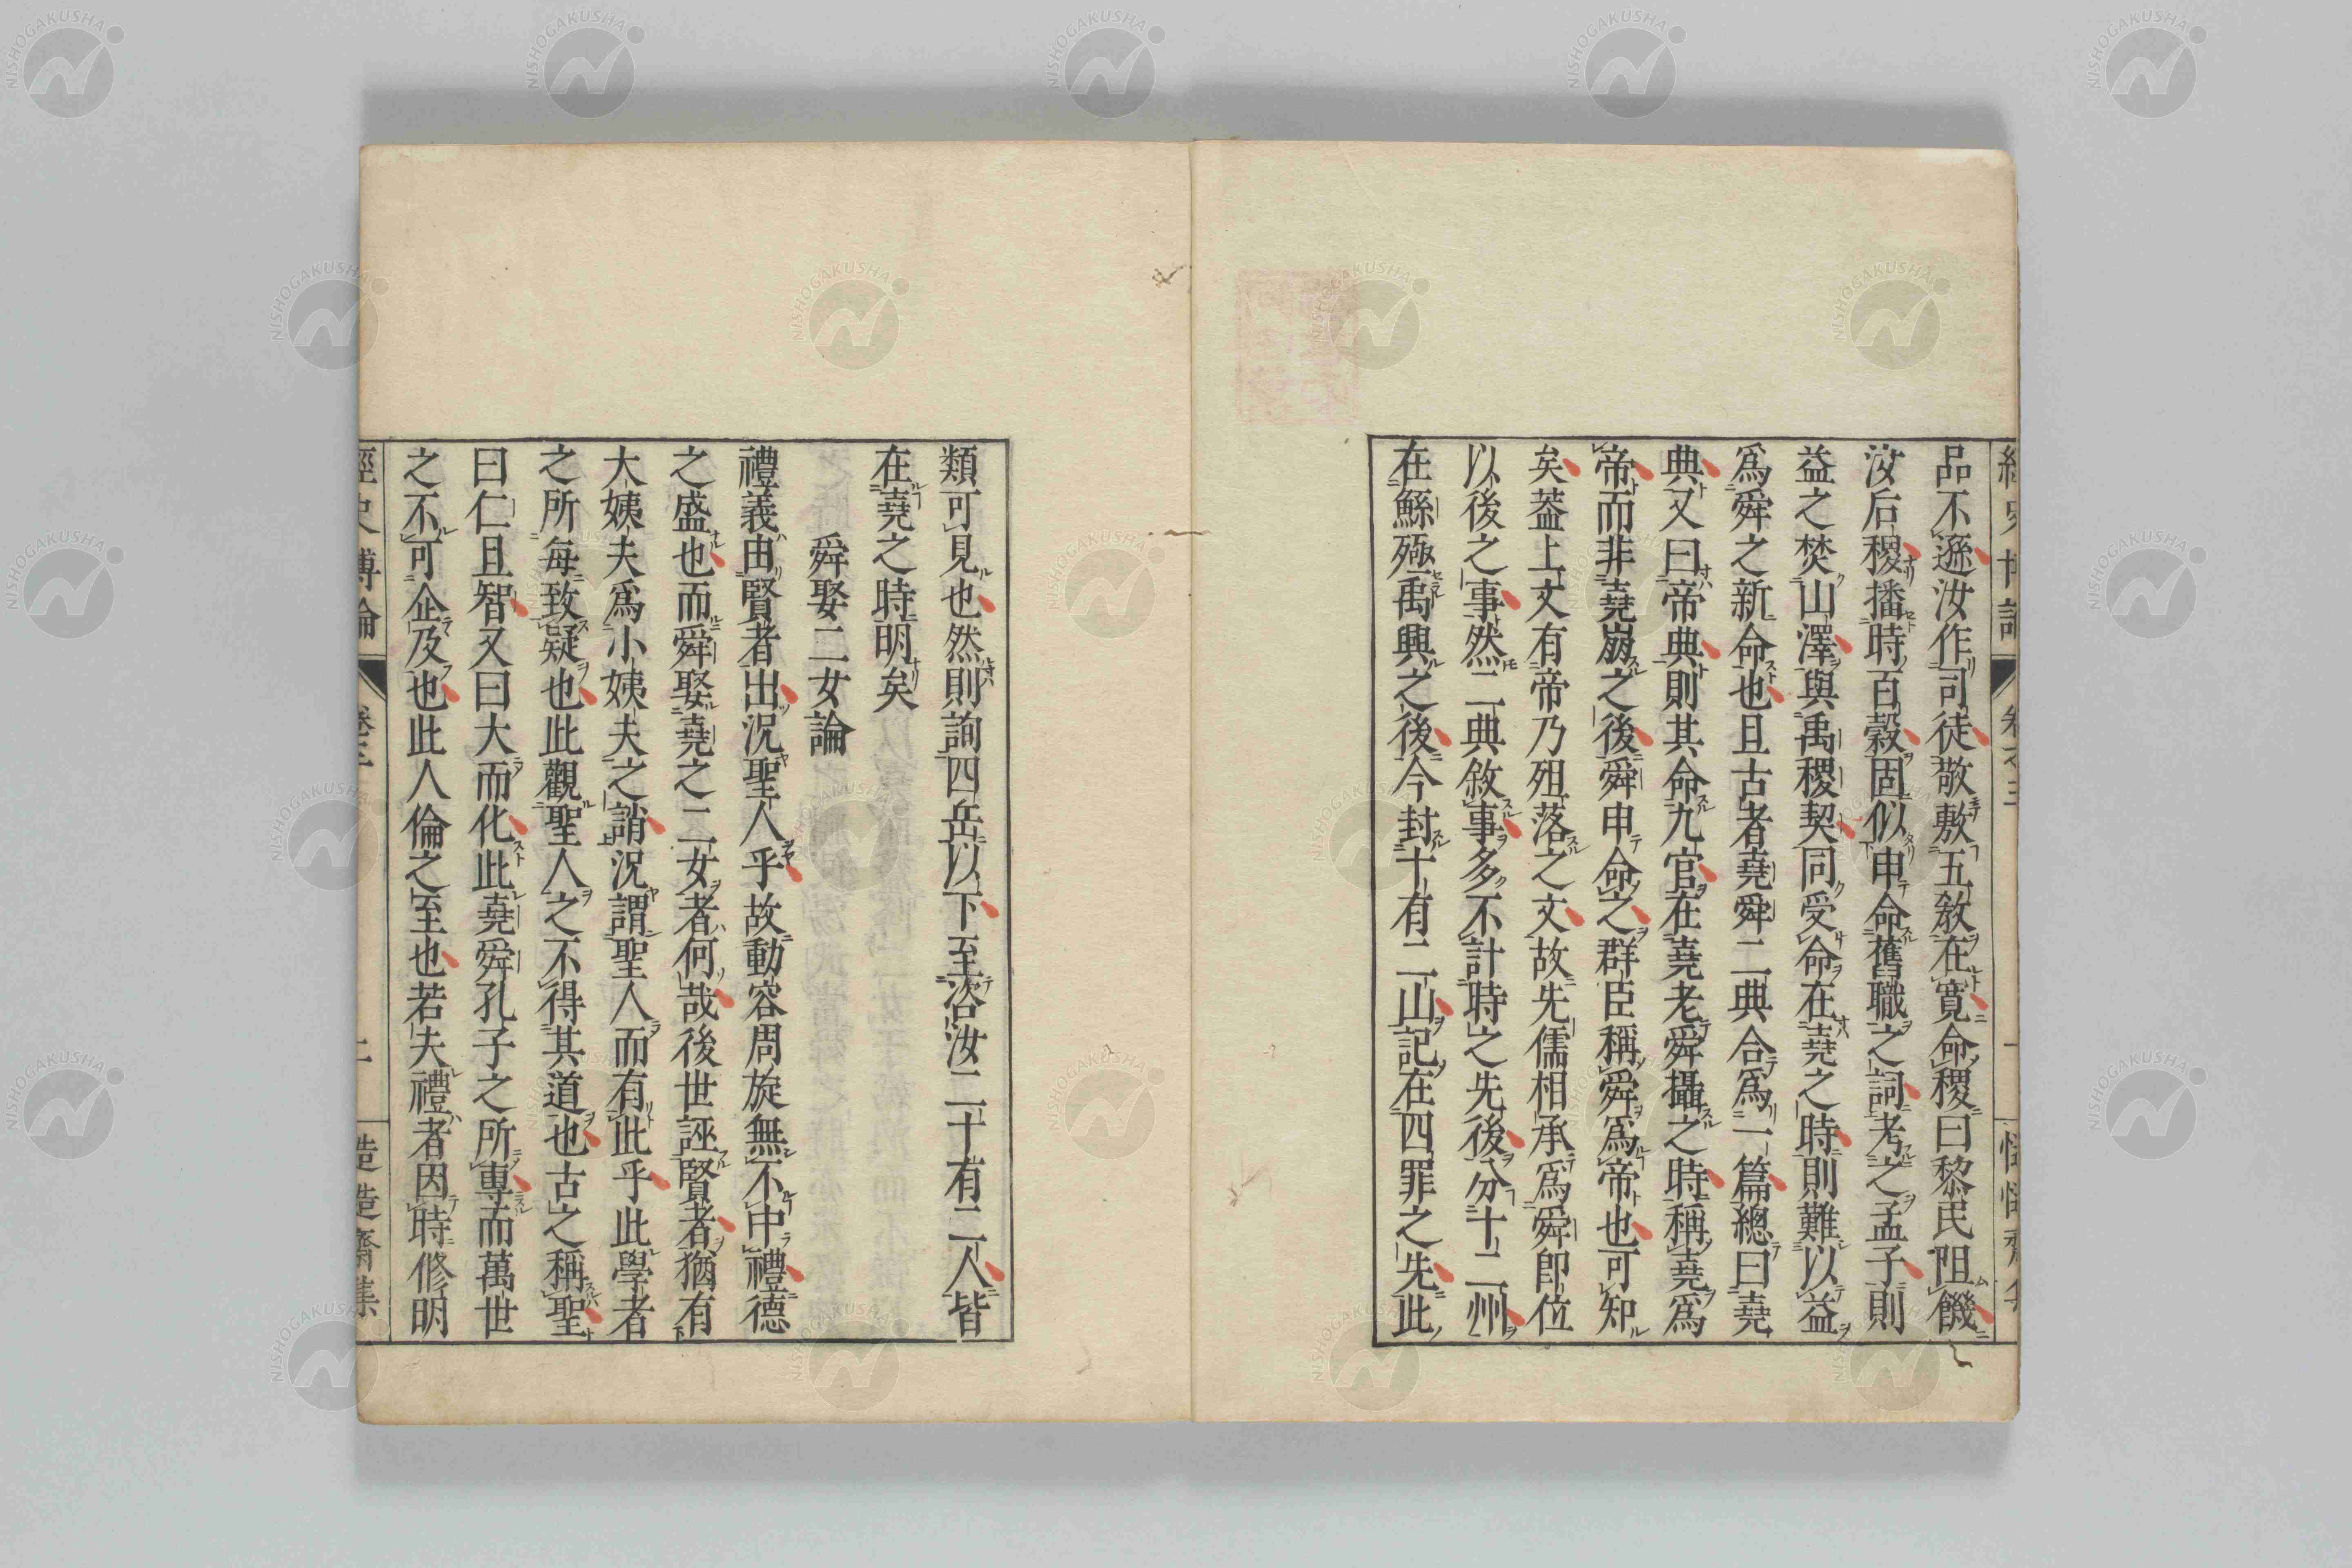 品不遜汝作司徒敬敷五敎在寛命稷曰黎民阻饑
汝后稷播時百穀固似申命舊職之詞考之孟子則
益之焚山澤與禹稷契同受命在堯之時則難以益
爲舜之新命也且古者堯舜二典合爲一篇總曰堯
典又曰帝典則其命九官在堯老舜攝之時稱堯爲
帝而非堯崩之後舜申命之群臣稱舜爲帝也可知
矣葢上文有帝乃殂落之文故先儒相承爲舜卽位
以後之事然二典敘事多不計時之先後分十二州
在鯀殛禹興之後今封十有二山記在四罪之先此
類可見也然則詢四岳以下至咨汝二十有二人皆
在堯之時明矣
舜娶二女論
禮義由賢者出況聖人乎故動容周旋無不中禮德
之盛也而舜娶堯之二女者何哉後世誣賢者猶有
大姨夫爲小姨夫之誚況謂聖人而有此乎此學者
之所每致疑也此觀聖人之不得其道也古之稱聖
曰仁且智又曰大而化此堯舜孔子之所專而萬世
之不可企及也此人倫之至也若夫禮者因時修明
經史博論 卷三 二 造造齋集
NISHOGAKUSHA